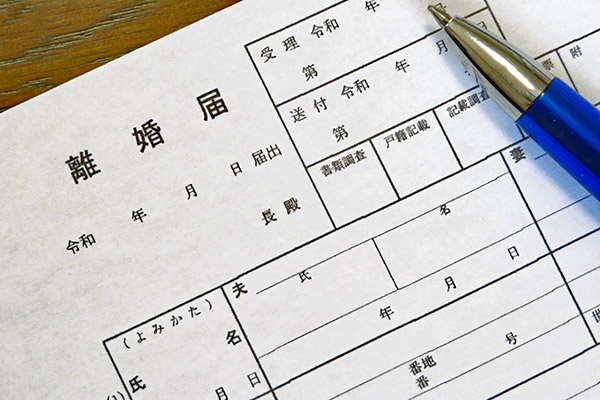 離婚届
令和 年 月 日 届出
長 殿
受理 令和 年 月
第 号
送付 令和 年 月
第
書類調査 戸籍記載 記載調査 票 附
(よみかた)
氏名
夫 氏 名
妻
年 月 日
月 日
番地 号
番
(1)
世